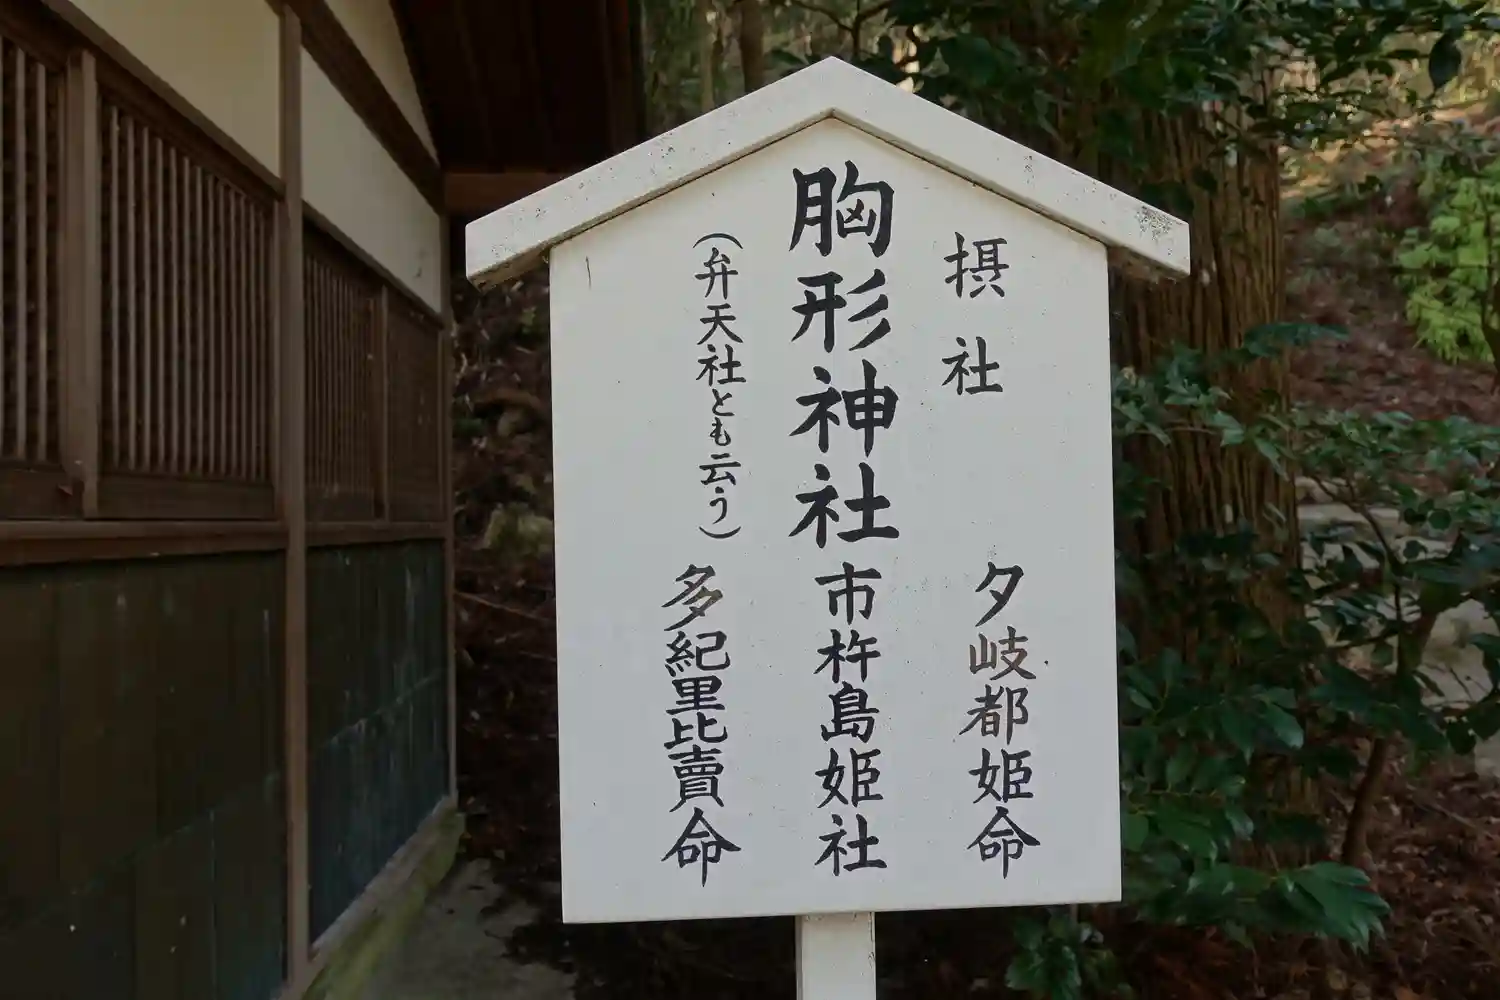 摂社
胸形神社
(弁天社とも云う)
夕岐都姫命
市杵島姫社
多紀里比賣命